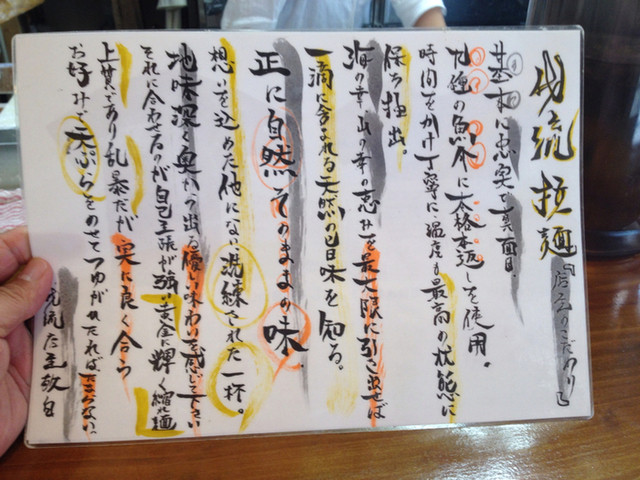 流拉麺『店主のこだわり』
基本に忠実で真面目。
九種の魚介に本格本返しを使用。
時間をかけ丁寧に温度も最高の状態に
保ち抽出。
海の幸山の幸の恵みを最大限に引き出せば
一滴に含まれる天然の旨味を知る。
正に自然そのままの味。
想いを込めた他にない洗練された一杯。
地味深く奥から出る優しい味わいを感じて下さい
それに合わせるのが自己主張が強い黄金に輝く縮れ麺
上質であり乱暴だが実に良く合う
お好みで天ぷらをのせてつゆがしたればたまらない。
流店主敬白